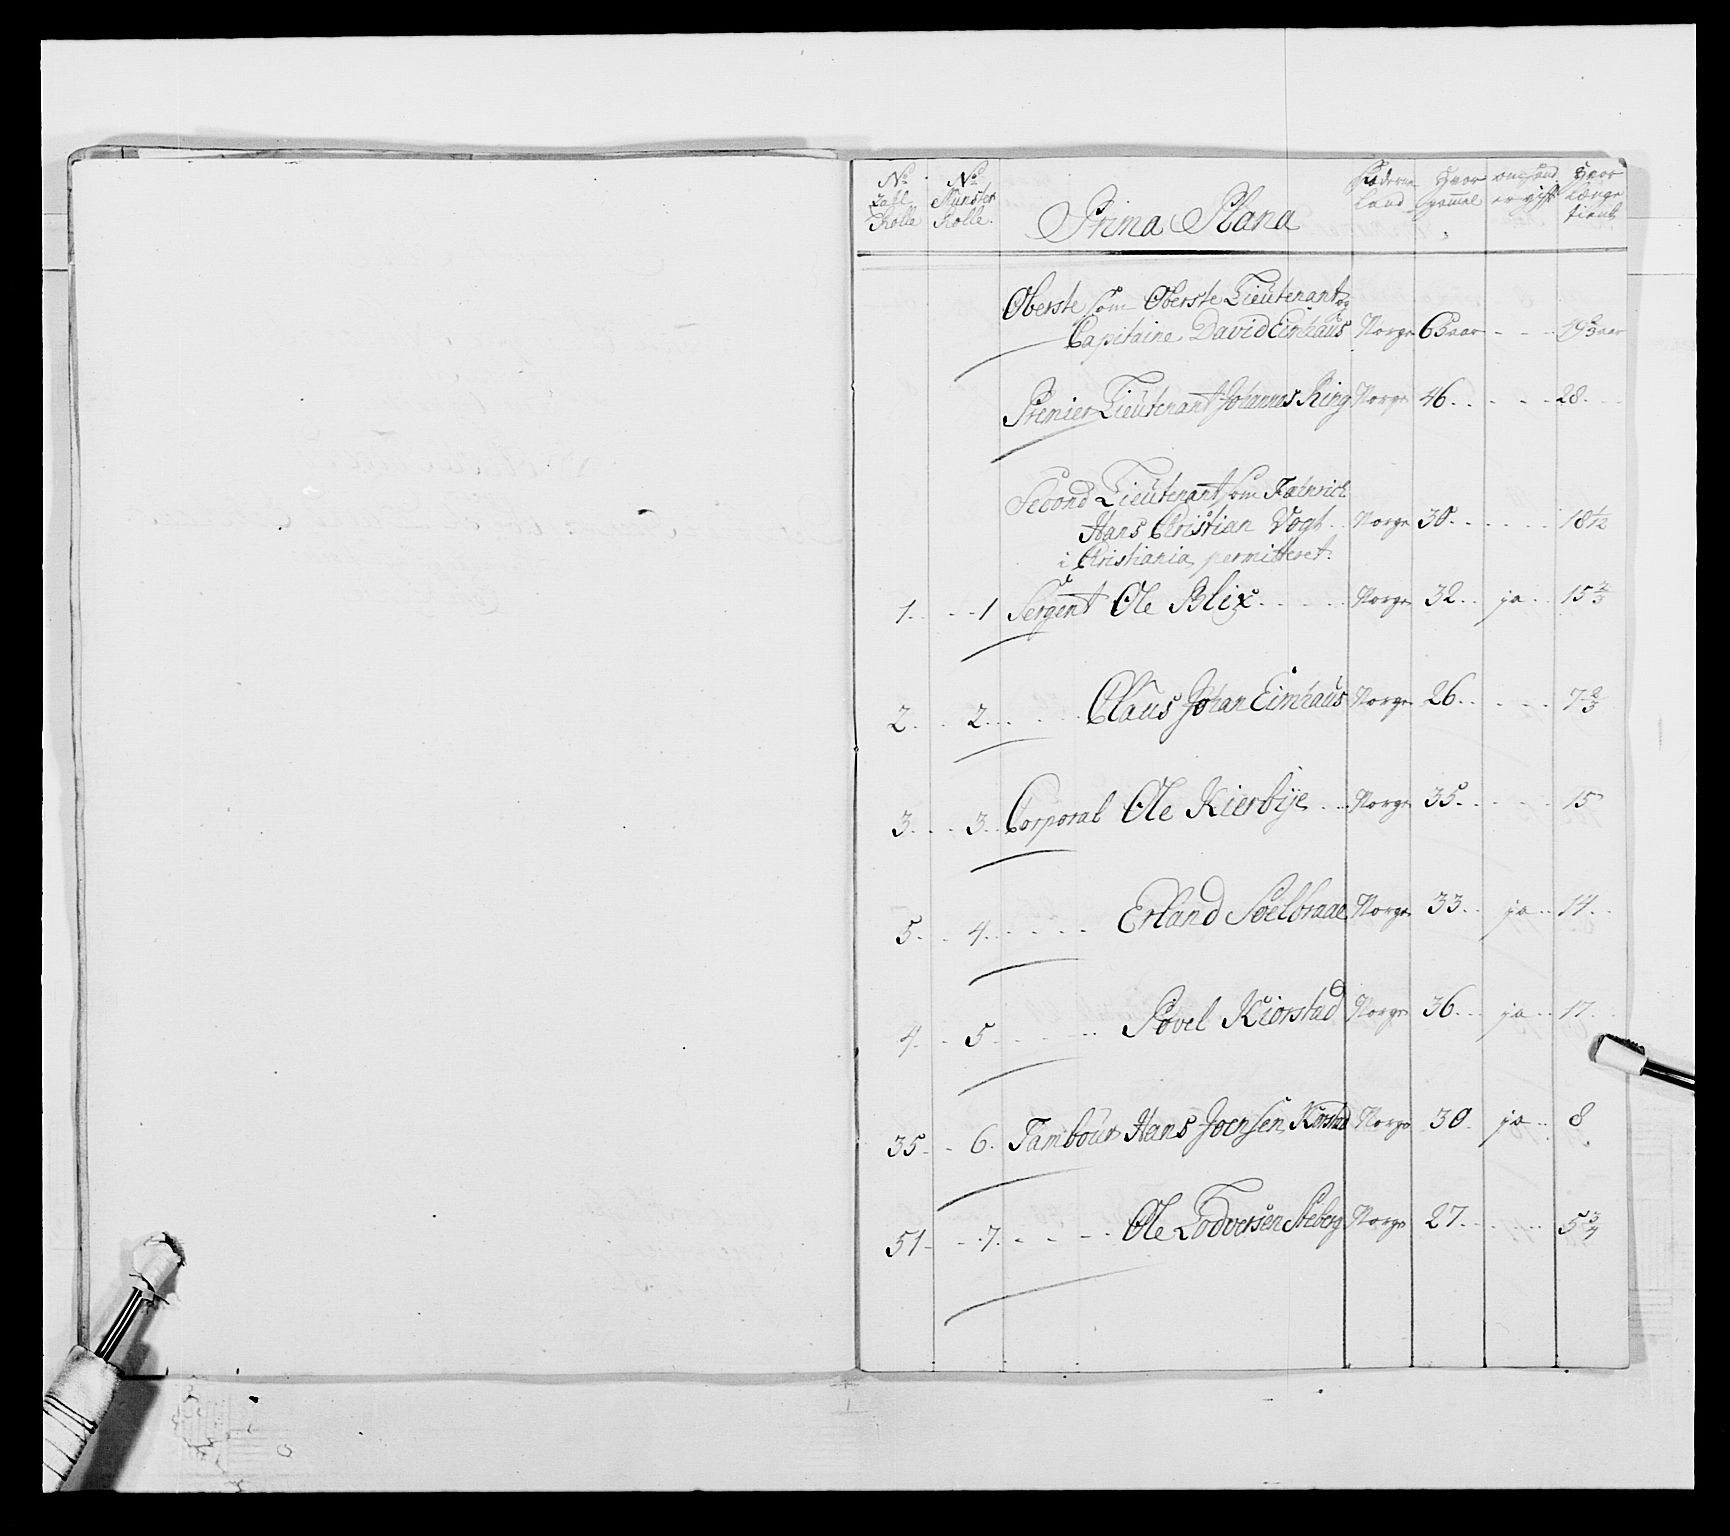 No No Fæderne Hvor om hand Hvor
Zahl Münster land gammel er gift længe
Rolle Rolle. Prima Plana tient
Oberste som Oberste Lieutenant og
Capitaine David Eimhaus Norge 63 aar - - - 19 2/3 aar
Premier Lieutenant Johannes Ring Norge 46. . - - . 28. . .
Second Lieutenant som Fænrich
Hans Christian Vogt. Norge 30. . . . . . 18 1/12
i Christiania permitteret.
1. . . 1 Sergent Ole Blix. . . . . . Norge 32. . ja . . 15 2/3
2. . . 2. . . . . Claus Johan Eimhaus Norge 26. . . . . 7 2/3
3. . . 3. . Corporal Ole Kierbÿe. . . . Norge 35. . . . . 15
5. . . 4. . . . . Erland Soelbraae Norge 33. . ja . . 14. .
4. . . 5. . . . . Povel Kiorstad Norge 36. . ja . . 17. . .
35. . 6. Tambour Hans Joensen Kiørstad Norge 30. ja . . 8
51 - . . 7. . . - . . Ole Todversen Norge 27. . . . . 5 3/4